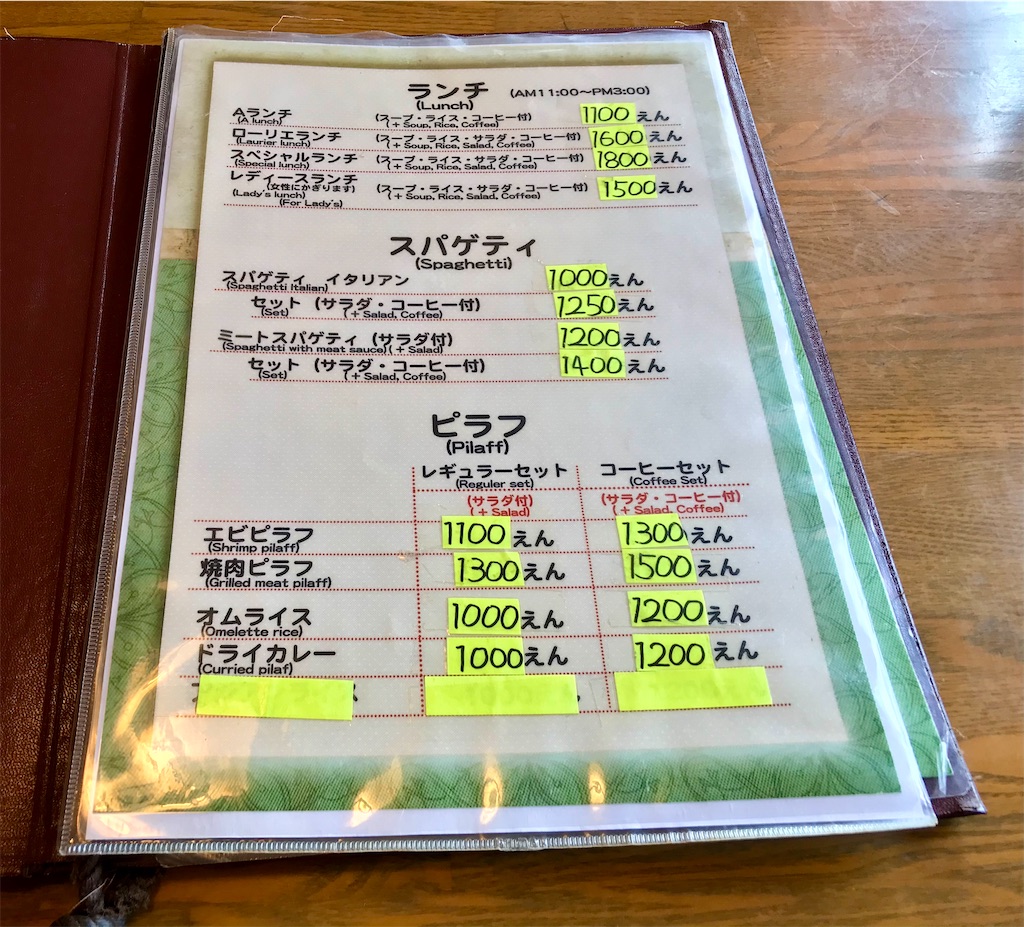 ランチ (AM11:00〜PM3:00)
(Lunch)
Aランチ (スープ・ライス・コーヒー付) 1100えん
(A lunch) (+ Soup, Rice, Coffee)
ローリエランチ (スープ・ライス・サラダ・コーヒー付) 1600えん
(Laurier lunch) (+ Soup, Rice, Salad, Coffee)
スペシャルランチ (スープ・ライス・サラダ・コーヒー付) 1800えん
(Special lunch) (+ Soup, Rice, Salad, Coffee)
レディースランチ (スープ・ライス・サラダ・コーヒー付) 1500えん
(女性にかぎります)
(Lady's lunch) (+ Soup, Rice, Salad, Coffee)
(For Lady's)
スパゲティ
(Spaghetti)
スパゲティ イタリアン 1000えん
(Spaghetti Italian)
セット (サラダ・コーヒー付) 1250えん
(Set) (+ Salad, Coffee)
ミートスパゲティ (サラダ付) 1200えん
(Spaghetti with meat sauce) (+ Salad)
セット (サラダ・コーヒー付) 1400えん
(Set) (+ Salad, Coffee)
ピラフ
(Pilaff)
レギュラーセット コーヒーセット
(Reguler set) (Coffee Set)
(サラダ付) (サラダ・コーヒー付)
(+ Salad) (+ Salad, Coffee)
エビピラフ 1100えん 1300えん
(Shrimp pilaff)
焼肉ピラフ 1300えん 1500えん
(Grilled meat pilaff)
オムライス 1000えん 1200えん
(Omelette rice)
ドライカレー 1000えん 1200えん
(Curried pilaf)